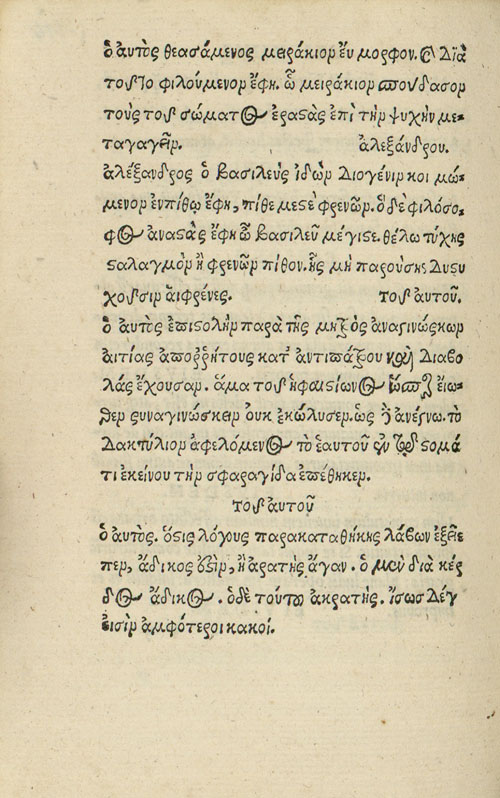 ὁ αὐτὸς θεασάμενος μειράκιον εὔμορφον. ϗ Διὰ
τοῦτο φιλούμενον ἔφη. ὦ μειράκιον σπούδασον
τοὺς τοῦ σώματος ἐραστὰς ἐπὶ τὴν ψυχὴν με-
ταγαγεῖν. ἀλεξάνδρου.
ἀλέξανδρος ὁ βασιλεὺς ἰδὼν Διογένην κοιμώ-
μενον ἐν πίθῳ ἔφη, πίθε μεστὲ φρενῶν. ὁ δὲ φιλόσο-
φος ἀναστὰς ἔφη ὦ βασιλεῦ μέγιστε. θέλω τύχης
σταλαγμὸν ἢ φρενῶν πίθον. ἧς μὴ παρούσης Δυστυ
χοῦσιν αἱ φρένες. τοῦ αὐτοῦ.
ὁ αὐτὸς ἐπιστολὴν παρὰ τῆς μητρὸς ἀναγινώσκων
αἰτίας ἀποῤῥήτους κατ' ἀντιπάτρου καὶ Διαβο
λὰς ἔχουσαν. ἅμα τοῦ ἡφαιστίωνος ὥσπερ εἴω-
θεν συναγινώσκειν οὐκ ἐκώλυσεν. ὡς δὲ ἀνέγνω. τὸ
Δακτύλιον ἀφελόμενος τὸ ἑαυτοῦ ἐν τῷ στομά
τι ἐκείνου τὴν σφραγίδα ἐπέθηκεν.
τοῦ αὐτοῦ
ὁ αὐτὸς. ὅστις λόγους παρακαταθήκης λάβων ἐξεῖ
πεν, ἄδικος ἐστὶν, ἢ ἀκρατὴς ἄγαν. ὁ μὲν διὰ κέρ
δος ἄδικος. ὁ δὲ τούτου ἀκρατής. ἴσως Δέ γ
εἰσὶν ἀμφότεροι κακοί.